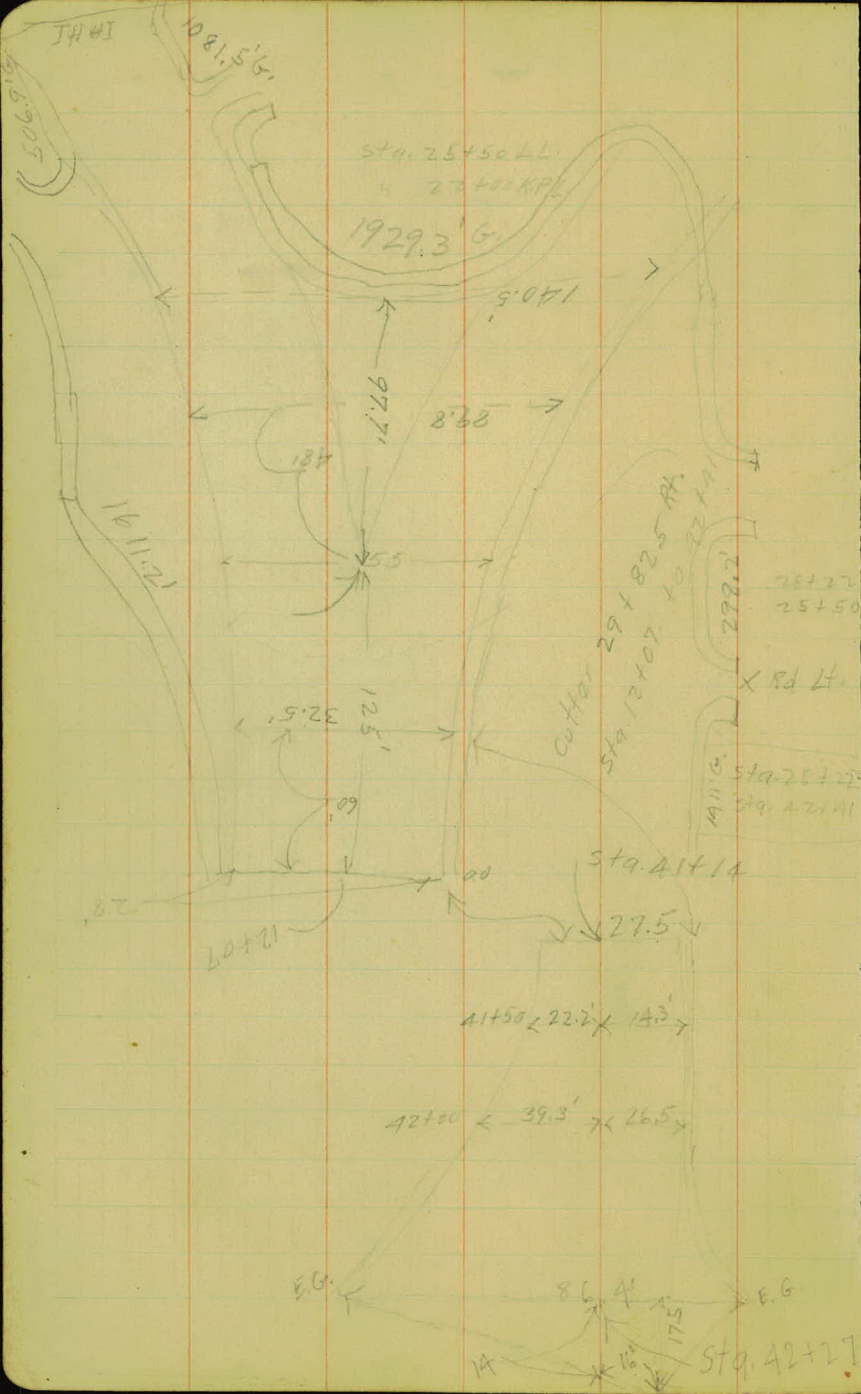 181.5' G.
509.9' G
Sta. 25+50 LL
" 22+00
1929.3' G.
140.5'
97.7'
89.8
48'
55
1911.2'
29+82.5 Rt.
Sta. 12+07. to 22+91
298.2'
28+22
25+50
X Rd Lt.
125'
32.5'
60'
1911' G.
Sta. 25+
Sta. 42+41
Sta. 41+14
28'
12+07
27.5
41+50 22.2' 14.3'
42+00 39.3' 26.5
E.G.
86 4'
E.G
17.5
14
16'
Sta. 42+27